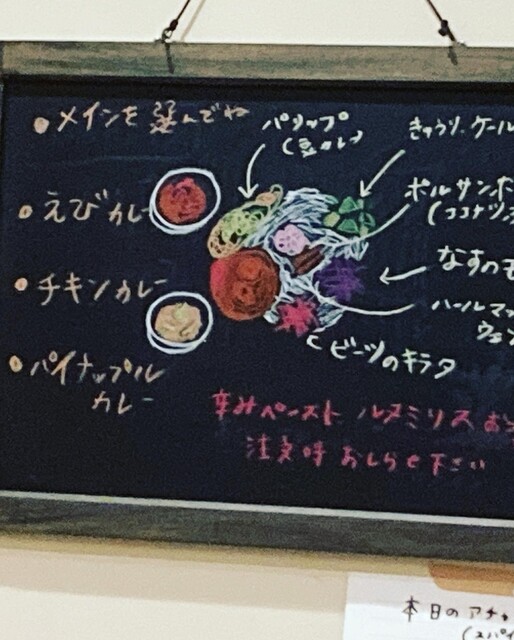 ・メインを選んでね
・えびカレー
・チキンカレー
・パイナップル
カレー
パリップ
(豆カレー)
きゅうり、ケール
ポルサンボ
(ココナツ
なすのモ
ハールマッ
ウェン
ビーツのキラタ
辛みペースト ルヌミリス お
注文時 おしらせ下さい
本日のアチャ
(スパイ